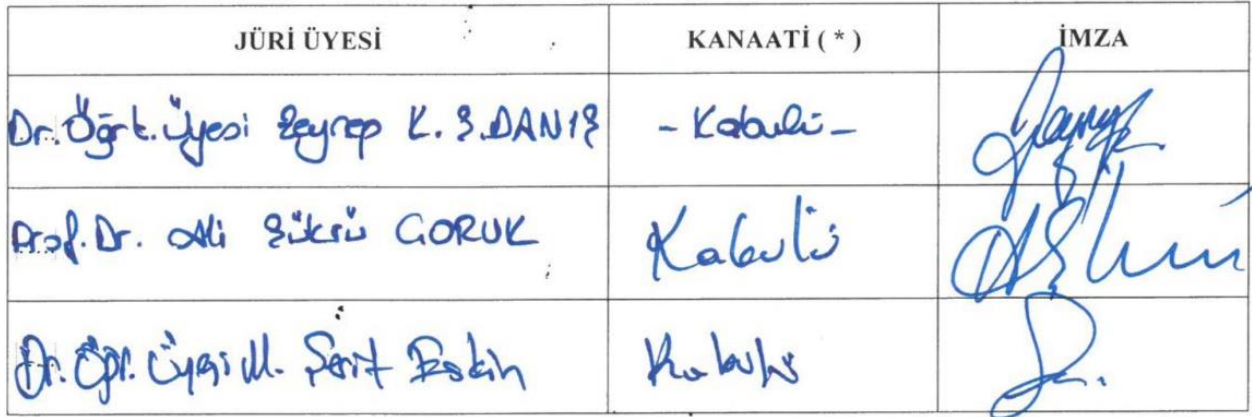 JÜRİ ÜYESİ KANAATİ ( * ) İMZA
Dr. Öğrt. Üyesi Zeynep K. Ş. DANIŞ - Kabulü -
Prof. Dr. Ali Şükrü ÇORUK Kabulü
Dr. Öğr. Üyesi M. Ferit Eskin Kabulü